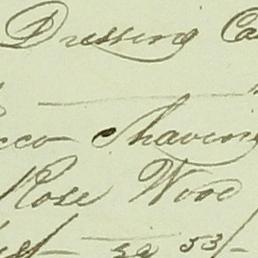 Dressing Ca
cco Shaving
Rose Wood
53/-